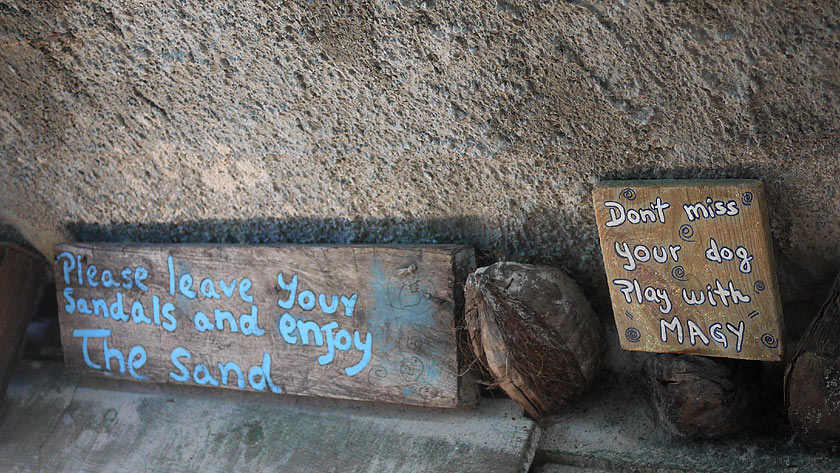 Please leave your
Sandals and enjoy
The Sand
Dont miss
your dog
Play with
MAGY